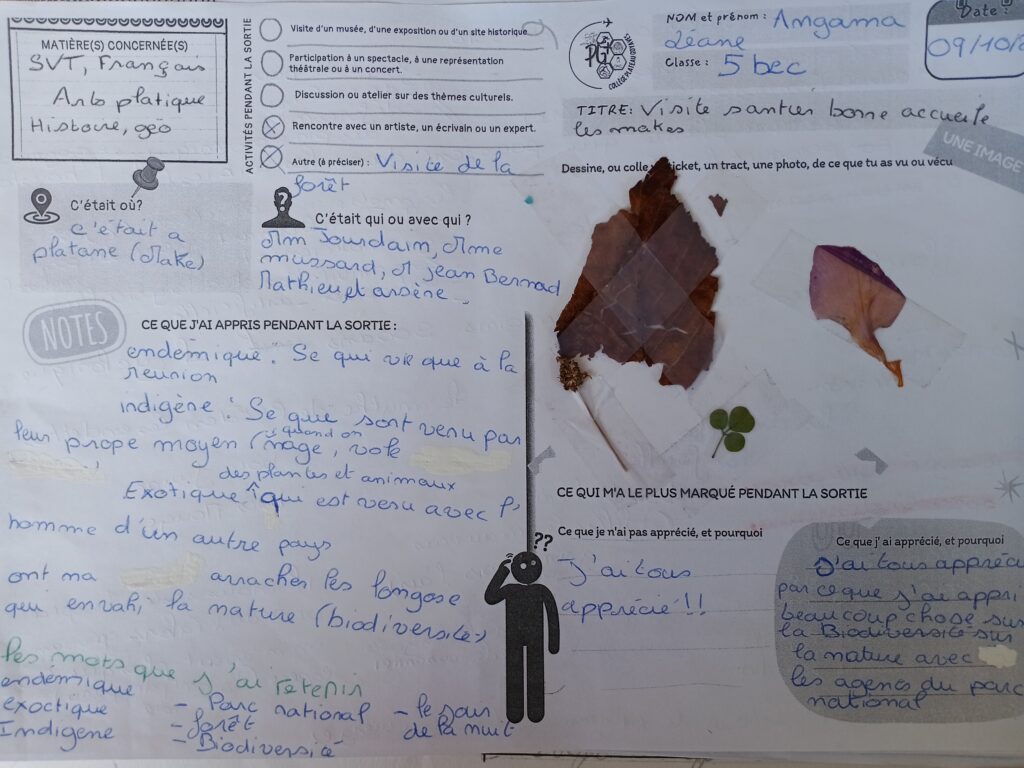 MATIÈRE(S) CONCERNÉE(S)
SVT, Français
Arts platique
Histoire, géo
ACTIVITÉS PENDANT LA SORTIE
Visite d'un musée, d'une exposition ou d'un site historique.
Participation à un spectacle, à une représentation
théâtrale ou à un concert.
Discussion ou atelier sur des thèmes culturels.
Rencontre avec un artiste, un écrivain ou un expert.
Autre (à préciser) : Visite de la
forêt
PG
COLLÈGE PLATEAU GOYAVES
NOM et prénom : Angama
Léane
Classe : 5 bec
Date :
09/10/2
TITRE: Visite santier bonne accueile
les makes
UNE IMAGE
Dessine, ou colle ticket, un tract, une photo, de ce que tu as vu ou vécu
C'était où?
c'était a
platane (Make)
C'était qui ou avec qui ?
Mm Jourdain, Mme
mussard, M jean Bernad
Mathieu et arsène
NOTES
CE QUE J'AI APPRIS PENDANT LA SORTIE :
endémique : Se qui vie que à la
reunion
indigène : Se que sont venu par
leur prope moyen (nage, vole
quand on
des plantes et animaux
Exotique : qui est venu avec l'
homme d'un autre pays
ont ma arracher les longose
qui envahi la nature (biodiversité)
les mots que j'ai retenir
endémique
exoctique
Indigène
- Parc national
- forêt
- Biodiversité
- le soir
de la nuit
??
CE QUI M'A LE PLUS MARQUÉ PENDANT LA SORTIE
Ce que je n'ai pas apprécié, et pourquoi
J'ai tous
apprécié !!
Ce que j'ai apprécié, et pourquoi
J'ai tous appréci
par ce que j'ai appri
beaucoup chose sur
la Biodiversité sur
la nature avec
les agens du parc
national